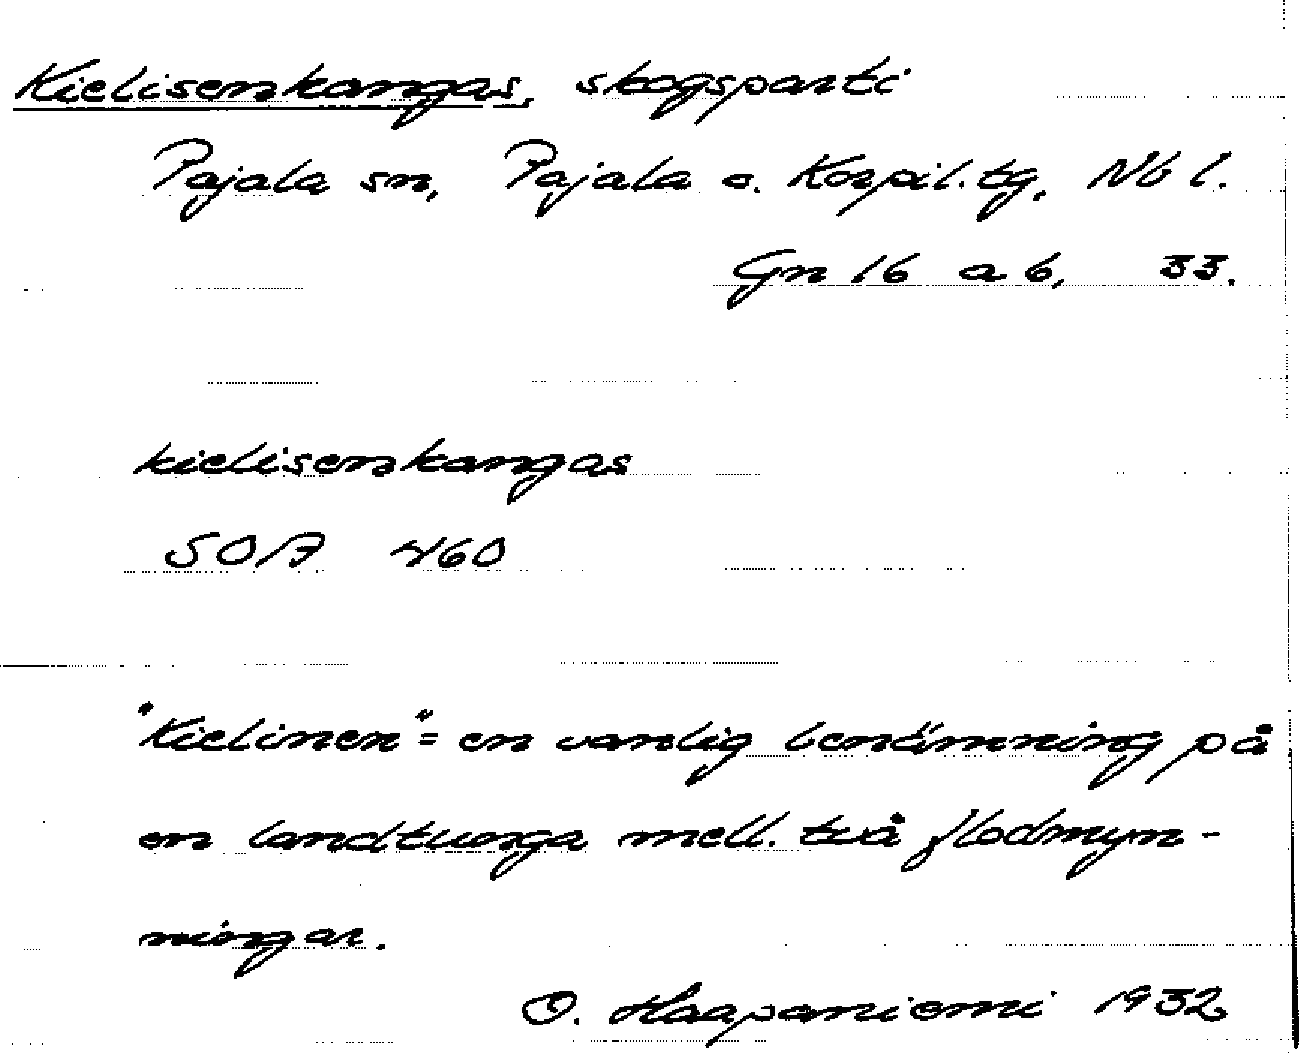 Kielisenkangas, skogsparti
Pajala sn, Pajala o. Korpil. tg, Nb l.
Gn 16 a b, 33.
kielisenkangas
SOA 460
"Kielinen" = en vanlig benämning på
en landtunga mell. två flodmyn-
ningar.
O. Haapaniemi 1932